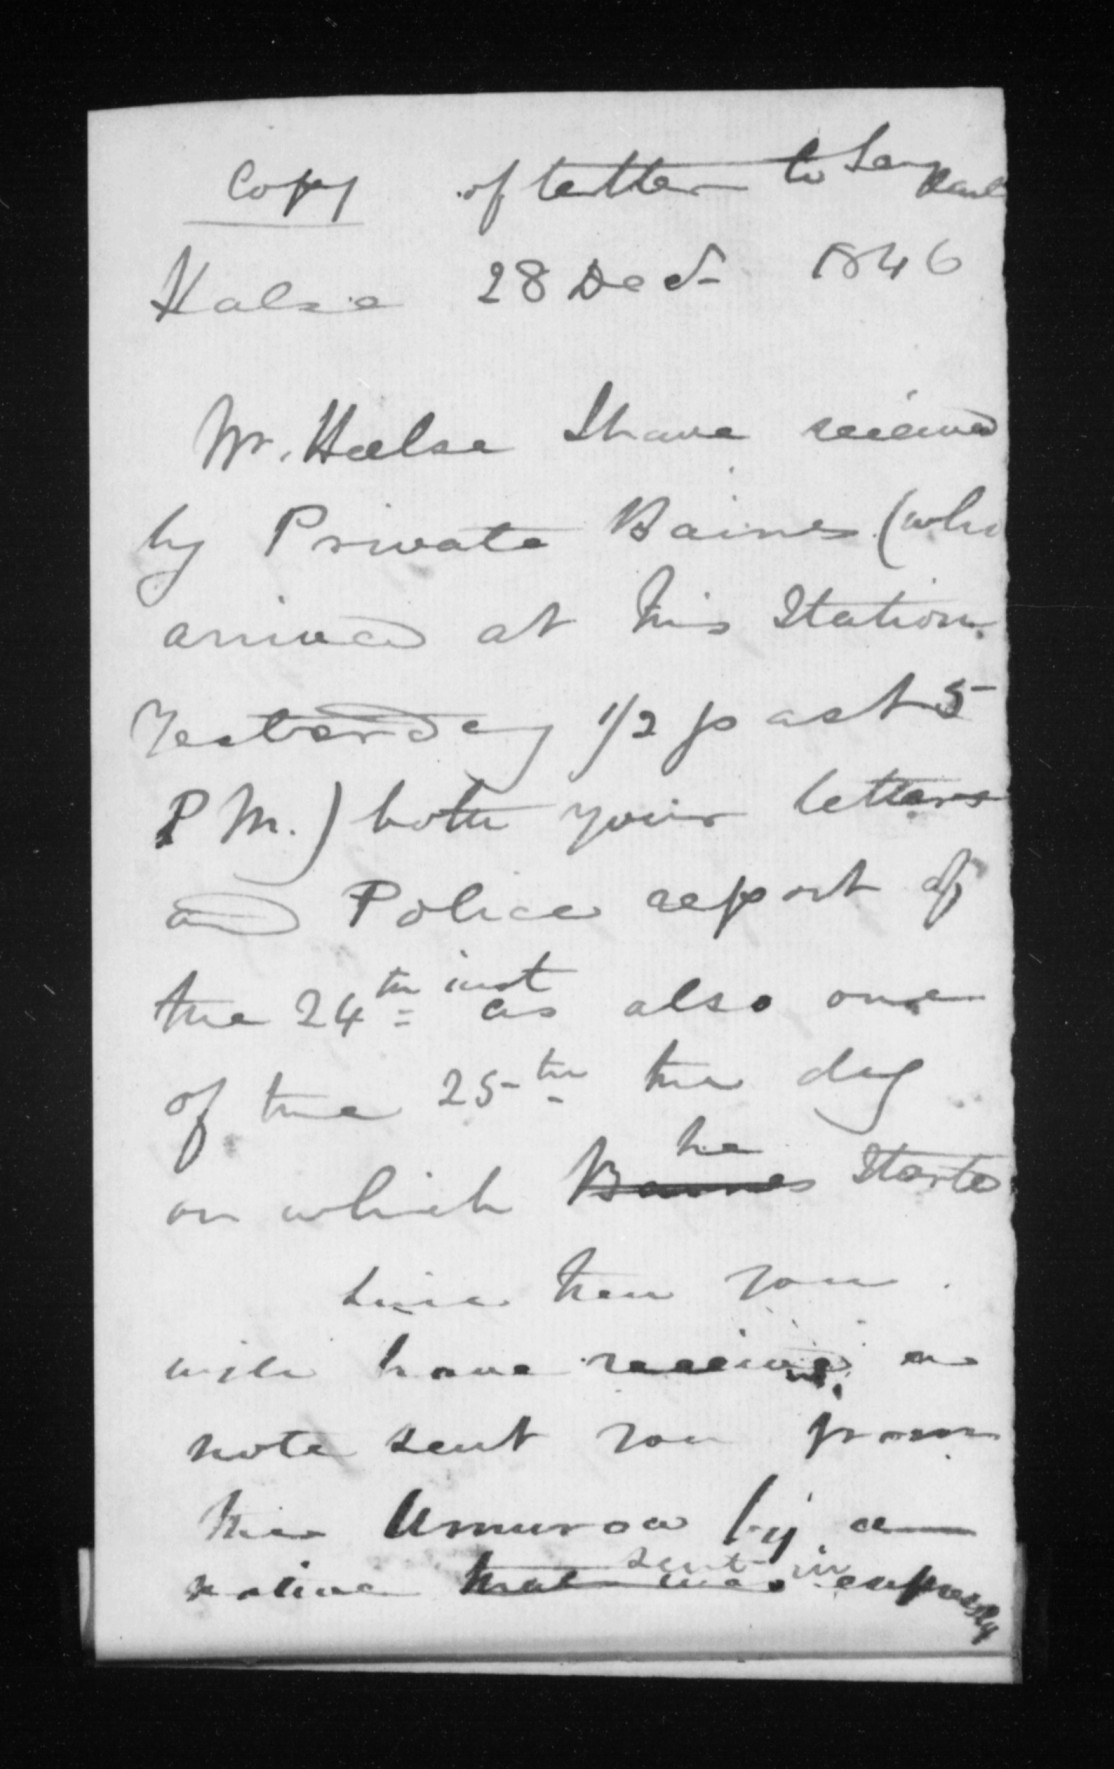 Copy of letter to Serg
Halse 28 Decr 1846
Mr. Halse I have received
by Private Baines (who
arrived at this Station
Yesterday 1/2 past 5
PM.) both your letters
and Police report of
the 24th inst as also one
of the 25th the day
on which Baines he started
Since then you
will have received a
note sent you from
the Umuroa by a
native that was sent in expressly